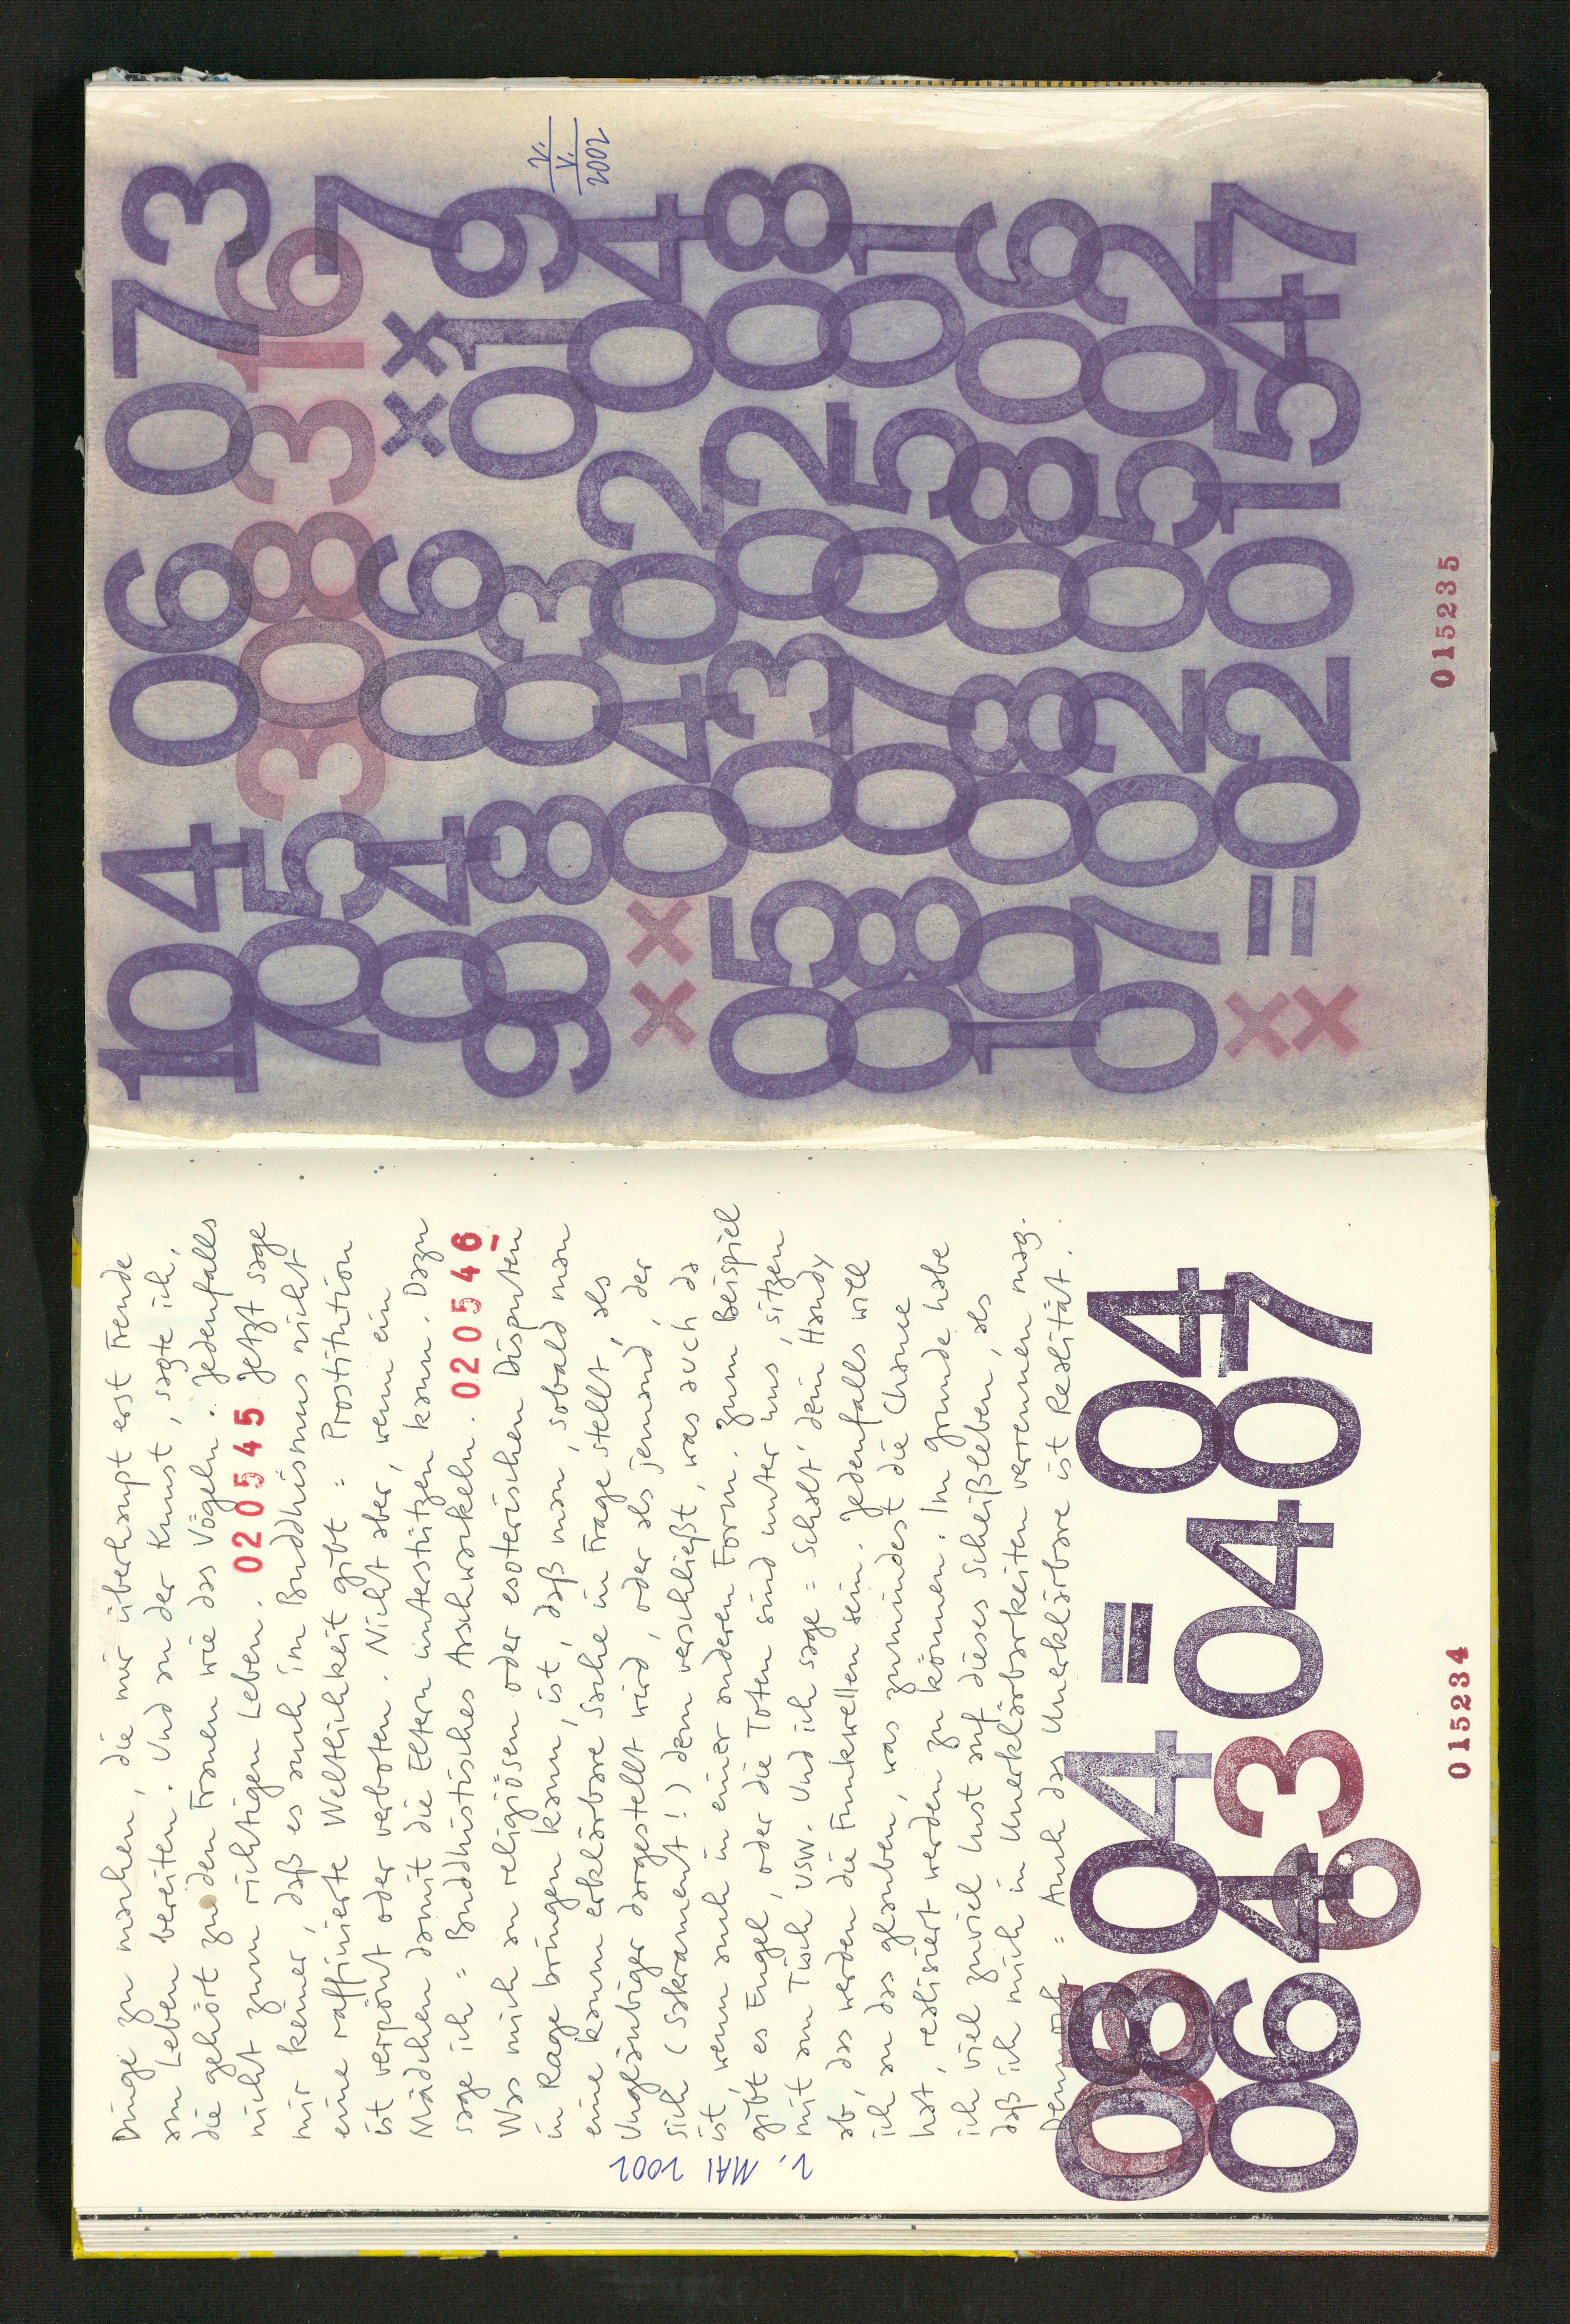 Dinge zu machen, die mir überhaupt erst Freude
am Leben bereiten. Und an der Kunst, sagte ich,
die gehört zu den Frauen wie das Vögeln. Jedenfalls
nicht zum richtigen Leben. 020545 Jetzt sage
mir keiner, daß es auch im Buddhismus nicht
eine raffinierte Weltlichkeit gibt = Prostitution
ist verpönt oder verboten. Nicht aber, wenn ein
Mädchen damit die Eltern unterstützen kann. Dazu
sage ich = Buddhistisches Arschwackeln. 020546
Was mich an religiösen oder esoterischen Disputen
in Rage bringen kann, ist, daß man, sobald man
eine kaum erklärbare Sache in Frage stellt, als
Ungläubiger dargestellt wird, oder als jemand, der
sich (Sakrament!) dem verschließt, was auch da
ist, wenn auch in einer anderen Form. Zum Beispiel
gibt es Engel, oder die Toten sind unter uns, sitzen
mit am Tisch usw. Und ich sage = Schalt' dein Handy
ab, das werden die Funkwellen sein. Jedenfalls will
ich an das glauben, was zumindest die Chance
hat, realisiert werden zu können. Im Grunde habe
ich viel zuviel Lust auf dieses Scheißleben, als
daß ich mich in Unerklärbarkeiten verrennen mag.
Dennoch = Auch das Unerklärbare ist Realität.
2. MAI 2002
04 = 04
064 3 0407
6
015234
104 06 073
705 308316 7
04 06 xx
908 03 019
xx 04 02 04
05 03 02 08
08 07 05 01
10 08 08 06
07 02 05 02
xx = 02 01547
2.
V.
2002
015235